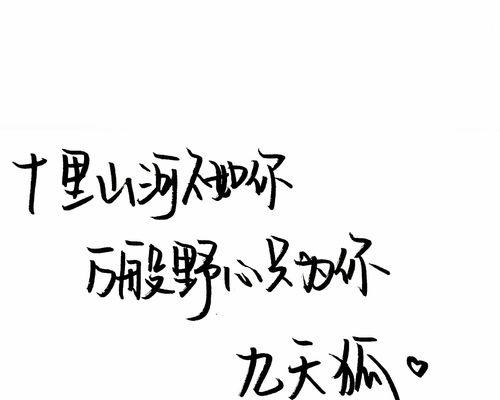 十里山河不如你
万般野心只为你
九天狐♡